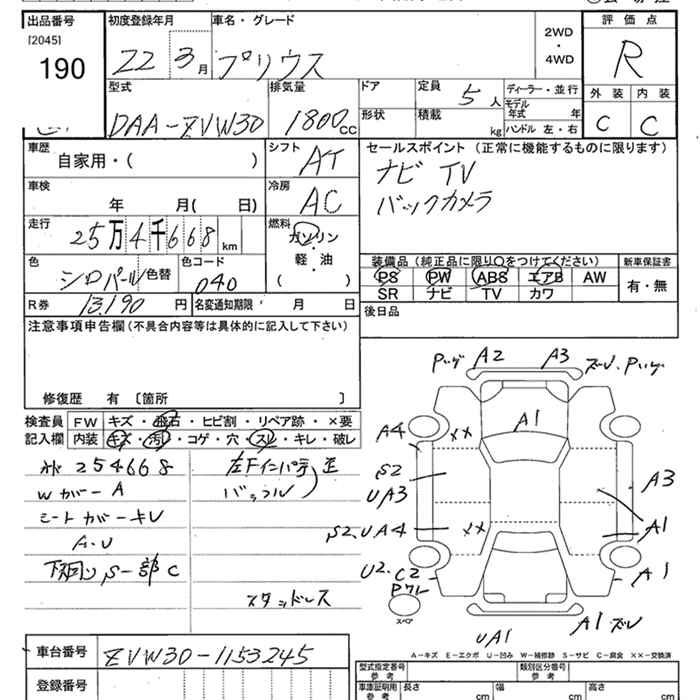 出品番号 初度登録年月 車名・グレード 2WD・4WD 評価点
[2045]
190 22 3月 プリウス R
型式 排気量 ドア 定員 5人 ディーラー・並行 外装 内装
DAA-ZVW30 1800cc 形状 積載 kg モデル年式 年 ハンドル 左・右 C C
車歴 自家用・( ) シフト AT セールスポイント (正常に機能するものに限ります)
ナビ TV
車検 年 月( 日) 冷房 AC バックカメラ
走行 25万4千668km 燃料 ガソリン・軽・油 ( )
装備品 (純正品に限り○をつけてください) 新車保証書
色 シロパール 色替 色コード 040 PS PW ABS エアB AW 有・無
SR ナビ TV カワ
R券 13,190円 名変通知期限 月 日 後日品
注意事項申告欄(不具合内容等は具体的に記入して下さい)
修復歴 有 [箇所 ]
検査員記入欄 FW キズ・飛石・ヒビ割・リペア跡・×要
内装 キズ・汚れ・コゲ・穴・スレ・キレ・破レ
254668 左Fインパネ
Wカバー A
シートカバーキレ
下廻り S-部C
スタッドレス
A2 A3 ズレ
A1
A4 ××
S2 A3
UA3
S2.UA4 ×× A1
U2.C2 A1
スペア
UA1 A1ズレ
A-キズ E-エクボ U-凹み W-補修跡 S-サビ C-腐食 ××-交換済
車台番号 ZVW30-1153245
登録番号
型式指定番号 参考 類別区分番号 参考
車庫証明用 参考 長さ cm 幅 cm 高さ cm